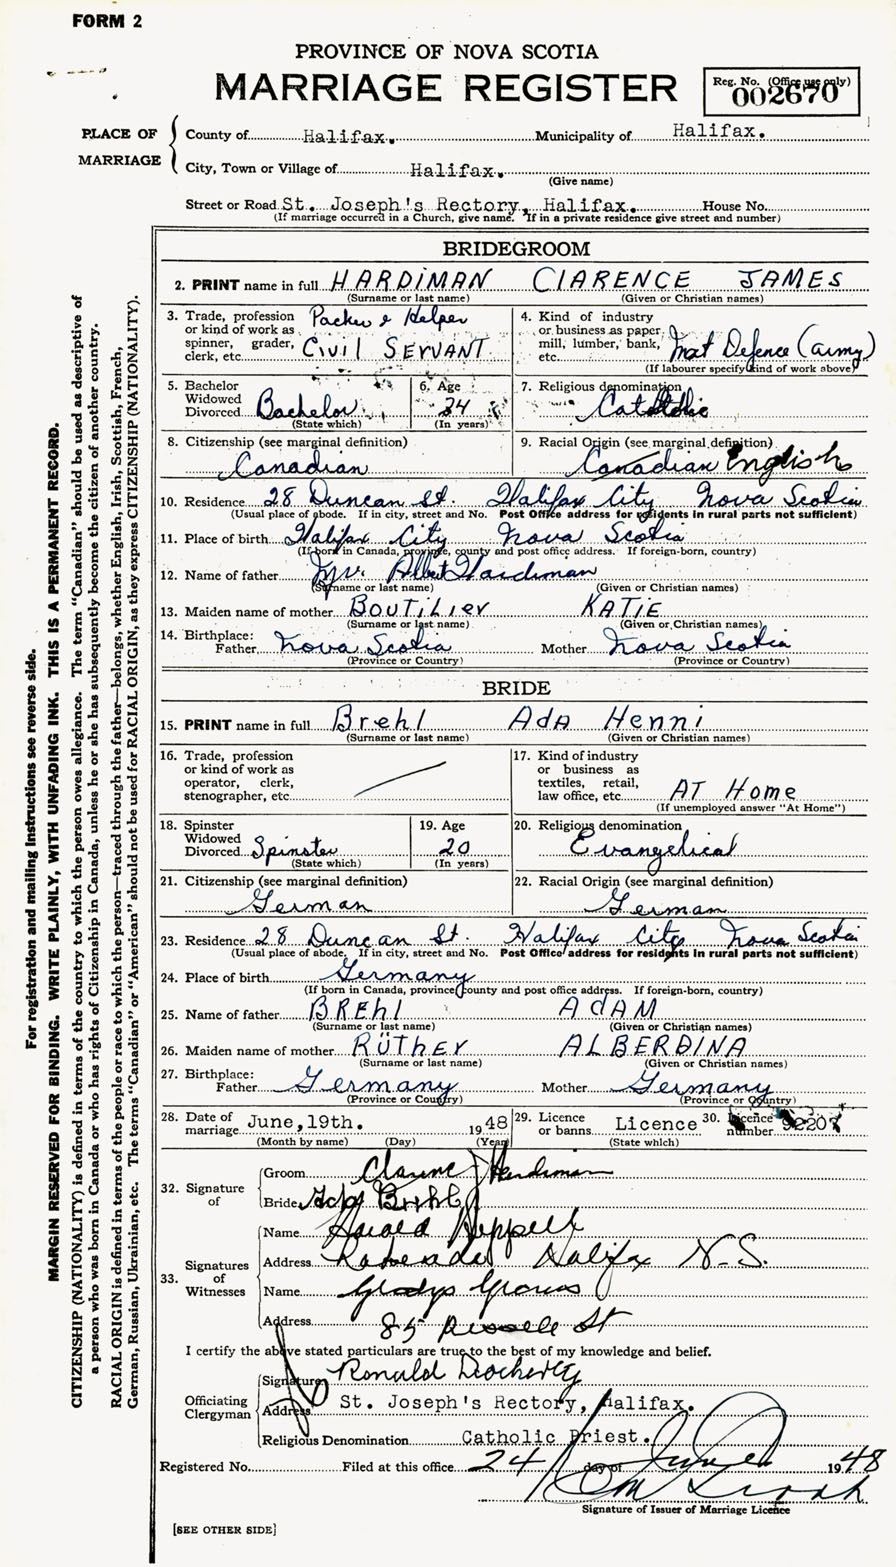 FORM 2
PROVINCE OF NOVA SCOTIA
MARRIAGE REGISTER
Reg. No. (Office use only)
002670
PLACE OF MARRIAGE
County of Halifax. Municipality of Halifax.
City, Town or Village of Halifax.
(Give name)
Street or Road St. Joseph's Rectory, Halifax. House No.
(If marriage occurred in a Church, give name. If in a private residence give street and number)
BRIDEGROOM
2. PRINT name in full HARDIMAN ClARENCE JAMES
(Surname or last name) (Given or Christian names)
3. Trade, profession or kind of work as spinner, grader, clerk, etc. Packer & Helper CIVIl SERVANT
4. Kind of industry or business as paper mill, lumber, bank, etc. Nat Defence (army)
(If labourer specify kind of work above)
5. Bachelor Widowed Divorced Bachelor
(State which)
6. Age 24
(In years)
7. Religious denomination Catholic
8. Citizenship (see marginal definition) Canadian
9. Racial Origin (see marginal definition) Canadian English
10. Residence 28 Duncan St. Halifax City Nova Scotia
(Usual place of abode. If in city, street and No. Post Office address for residents in rural parts not sufficient)
11. Place of birth Halifax City Nova Scotia
(If born in Canada, province, county and post office address. If foreign-born, country)
12. Name of father Mr. Albert Hardiman
(Surname or last name) (Given or Christian names)
13. Maiden name of mother BOUTILIER KATIE
(Surname or last name) (Given or Christian names)
14. Birthplace: Father Nova Scotia Mother Nova Scotia
(Province or Country) (Province or Country)
BRIDE
15. PRINT name in full Brehl AdA Henni
(Surname or last name) (Given or Christian names)
16. Trade, profession or kind of work as operator, clerk, stenographer, etc.
17. Kind of industry or business as textiles, retail, law office, etc. AT Home
(If unemployed answer "At Home")
18. Spinster Widowed Divorced Spinster
(State which)
19. Age 20
(In years)
20. Religious denomination Evangelical
21. Citizenship (see marginal definition) German
22. Racial Origin (see marginal definition) German
23. Residence 28 Duncan St. Halifax City Nova Scotia
(Usual place of abode. If in city, street and No. Post Office address for residents in rural parts not sufficient)
24. Place of birth Germany
(If born in Canada, province county and post office address. If foreign-born, country)
25. Name of father BREHl AdAM
(Surname or last name) (Given or Christian names)
26. Maiden name of mother RÜTHER ALBERDINA
(Surname or last name) (Given or Christian names)
27. Birthplace: Father Germany Mother Germany
(Province or Country) (Province or Country)
28. Date of marriage June,19th. 1948
(Month by name) (Day) (Year)
29. Licence or banns Licence
(State which)
30. Licence number 92207
32. Signature of
Groom Clarence J Hardiman
Bride Ada Brehl
33. Signatures of Witnesses
Name Harold
Address Halifax N.S.
Name Gladys
Address 85 Russell St
I certify the above stated particulars are true to the best of my knowledge and belief.
Officiating Clergyman
Signature Ronald Docherty
Address St. Joseph's Rectory, Halifax.
Religious Denomination Catholic Priest.
Registered No. Filed at this office 24 day of June 1948
Signature of Issuer of Marriage Licence
[SEE OTHER SIDE]
For registration and mailing instructions see reverse side.
MARGIN RESERVED FOR BINDING. WRITE PLAINLY, WITH UNFADING INK. THIS IS A PERMANENT RECORD.
CITIZENSHIP (NATIONALITY) is defined in terms of the country to which the person owes allegiance. The term "Canadian" should be used as descriptive of
a person who was born in Canada or who has rights of Citizenship in Canada, unless he or she has subsequently become the citizen of another country.
RACIAL ORIGIN is defined in terms of the people or race to which the person—traced through the father—belongs, whether English, Irish, Scottish, French,
German, Russian, Ukrainian, etc. The terms "Canadian" or "American" should not be used for RACIAL ORIGIN, as they express CITIZENSHIP (NATIONALITY).